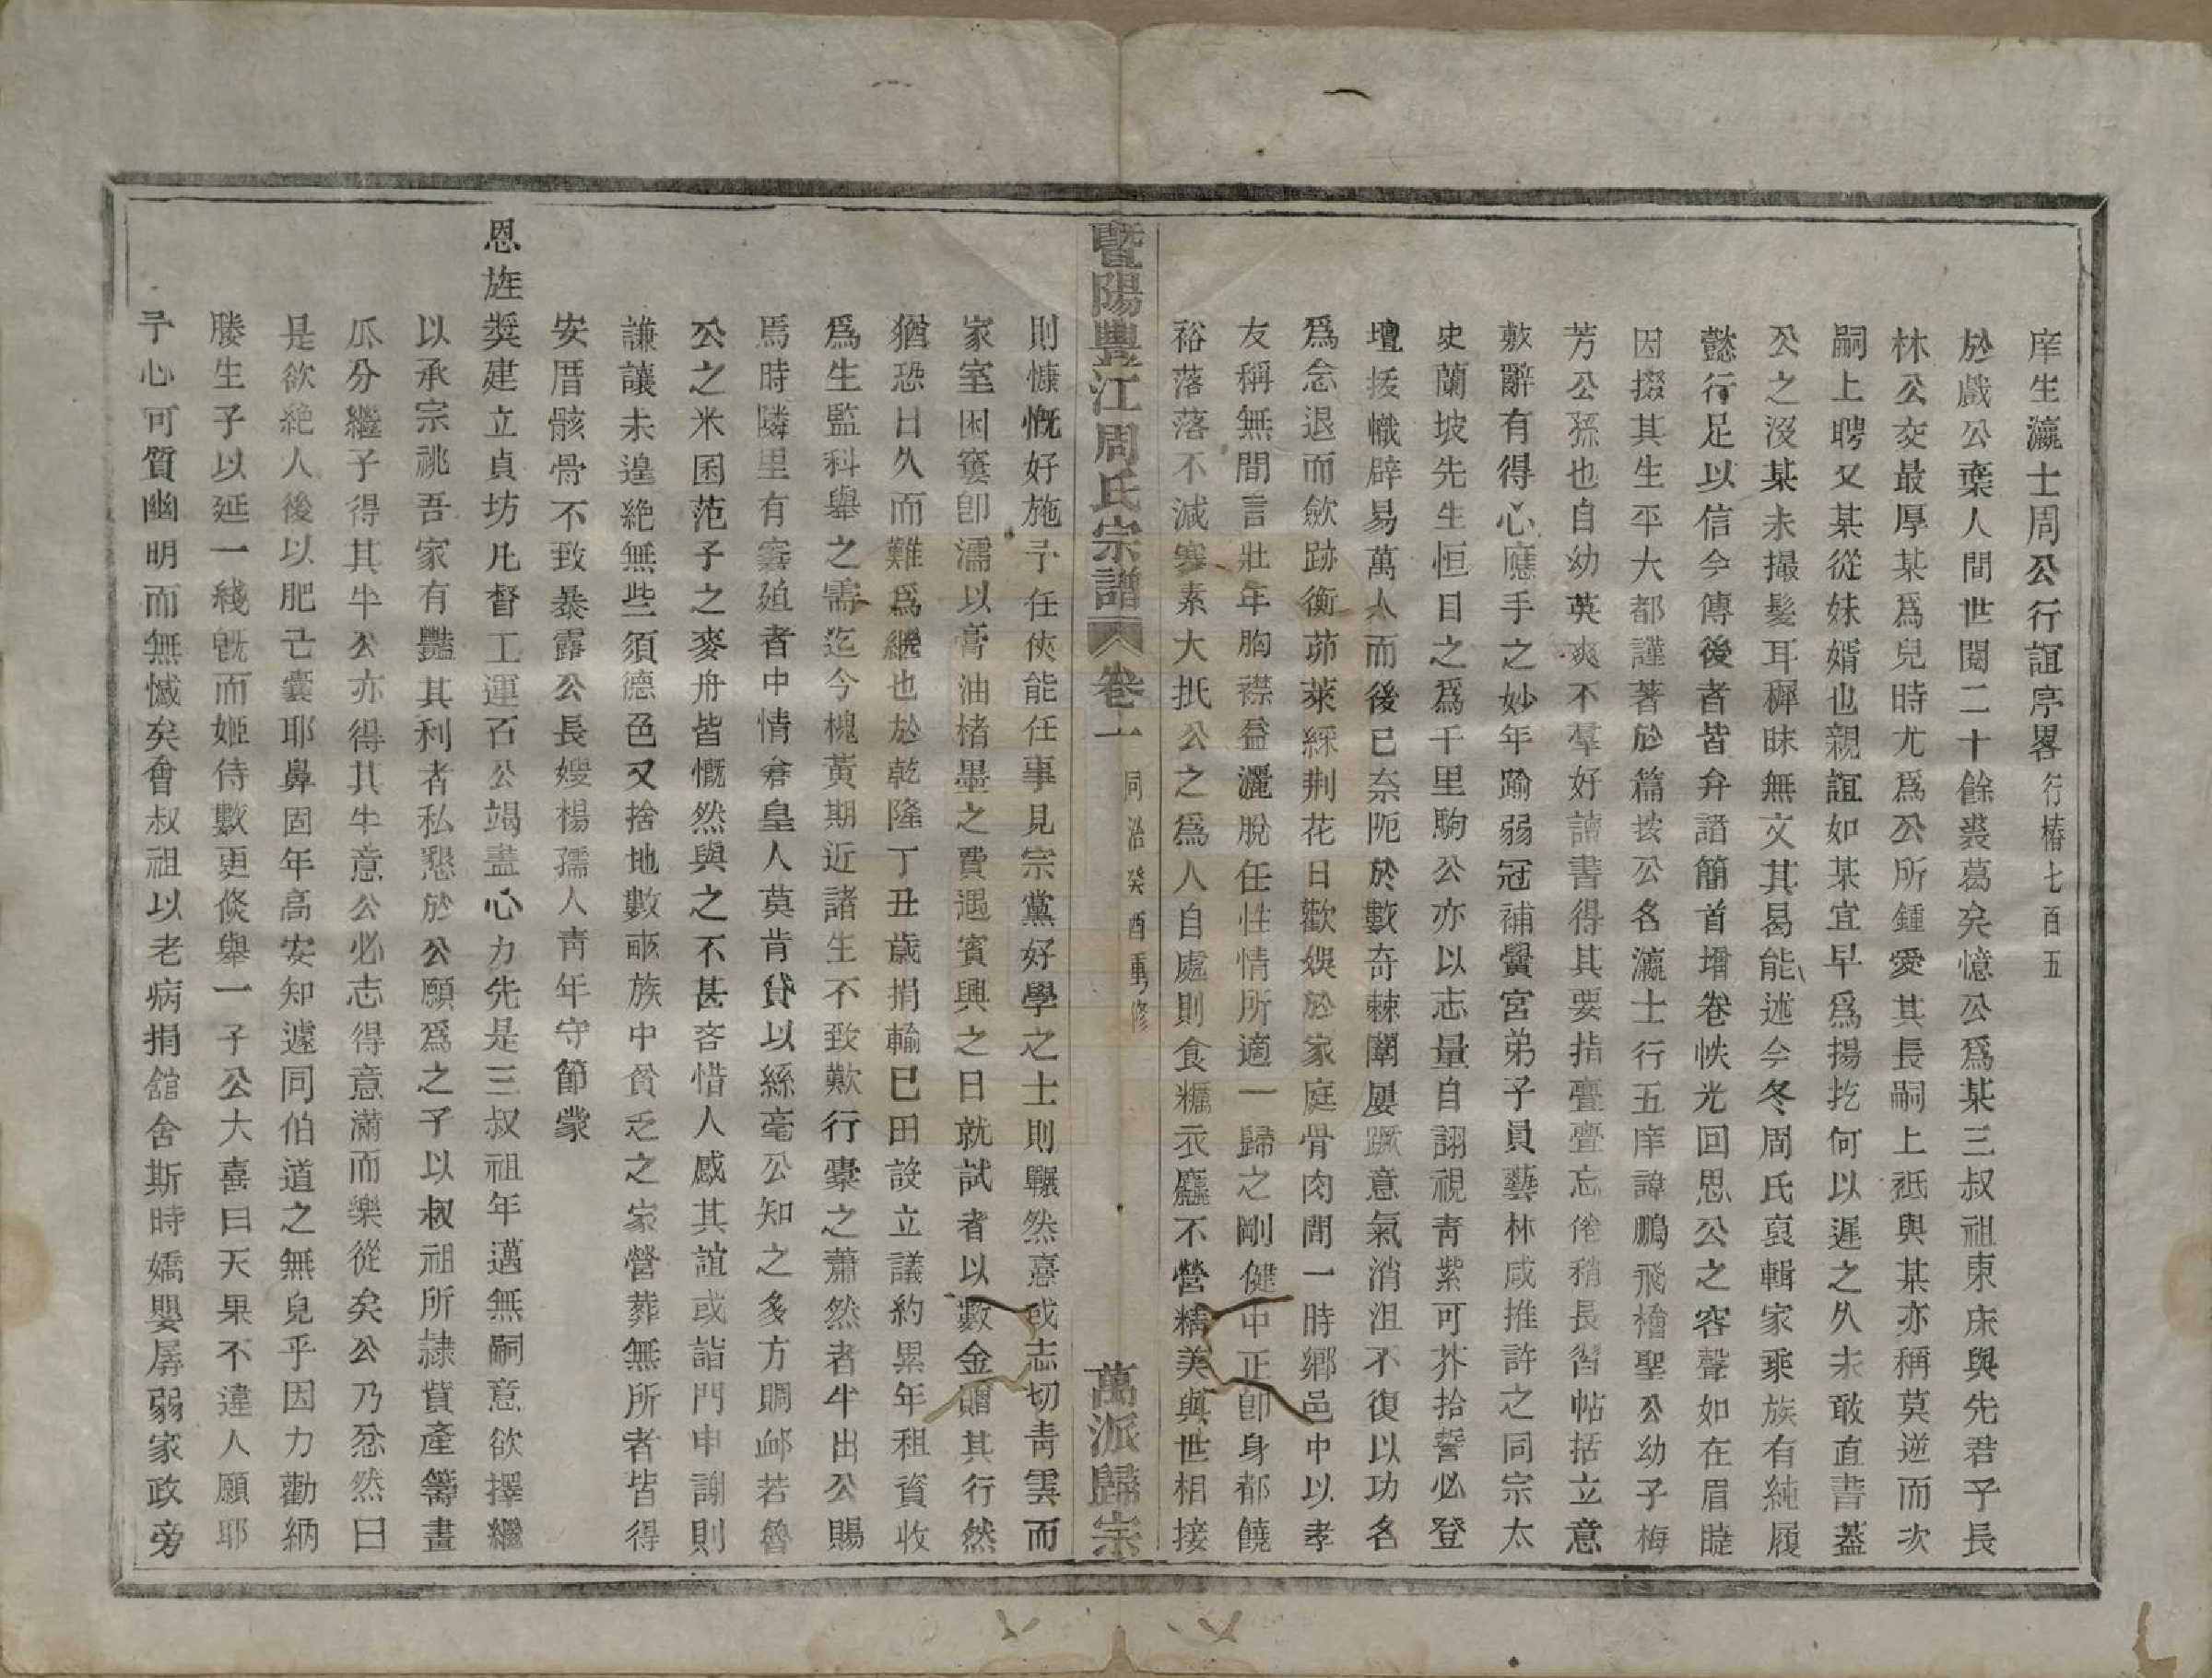 庠生瀛士周公行誼序畧行椿七百五
於戲公棄人間世閱二十餘裘葛矣憶公爲某三叔祖東床與先君子長
林公交最厚某爲兒時尤爲公所鍾愛其長嗣上祗與某亦稱莫逆而次
嗣上聘又某從妹婿也親誼如某宜早爲揚扢何以遲之久未敢直書蓋
公之沒某未撮髮耳穉昧無文其曷能述今冬周氏裒輯家乘族有純履
懿行足以信今傳後者皆弁諸簡首增卷帙光回思公之容聲如在眉睫
因掇其生平大都謹著於篇按公名瀛士行五庠諱鵬飛檜聖公幼子梅
芳公孫也自幼英爽不羣好讀書得其要指亹亹忘倦稍長習帖括立意
敷辭有得心應手之妙年踰弱冠補黌宮弟子員藝林咸推許之同宗太
史蘭坡先生恒目之爲千里駒公亦以志量自詡視青紫可芥拾誓必登
壇拔幟辟易萬人而後已奈阨於數奇棘闈屢蹶意氣消沮不復以功名
爲念退而斂跡衡茆萊綵荆花日歡娛於家庭骨肉間一時鄉邑中以孝
友稱無間言壯年胸襟益灑脫任性情所適一歸之剛健中正卽身都饒
裕落落不減寒素大抵公之爲人自處則食糲衣麤不營精美與世相接
暨陽豐江周氏宗譜 卷一 同治癸酉重修 萬派歸宗
則慷慨好施予任俠能任事見宗黨好學之士則囅然憙或志切青雲而
家室困窶卽濡以膏油楮墨之費遇賓興之日就試者以數金贈其行然
猶恐日久而難爲繼也於乾隆丁丑歲捐輸已田設立議約累年租資收
爲生監科舉之需迄今槐黃期近諸生不致歎行橐之蕭然者半出公賜
焉時隣里有窘廹者中情倉皇人莫肯貸以絲毫公知之多方賙邺若魯
公之米囷范子之麥舟皆慨然與之不甚吝惜人感其誼或詣門申謝則
謙讓未遑絶無些須德色又捨地數畝族中貧乏之家營葬無所者皆得
安厝骸骨不致暴露公長嫂楊孺人青年守節蒙
恩旌獎建立貞坊凡督工運石公竭盡心力先是三叔祖年邁無嗣意欲擇繼
以承宗祧吾家有豔其利者私懇於公願爲之子以叔祖所隷貲產籌畫
瓜分繼子得其半公亦得其半意公必志得意滿而樂從矣公乃忿然曰
是欲絶人後以肥己囊耶鼻固年高安知遽同伯道之無兒乎因力勸納
媵生子以延一綫旣而姬侍數更倐舉一子公大喜曰天果不違人願耶
予心可質幽明而無憾矣會叔祖以老病捐舘舍斯時嬌嬰孱弱家政旁